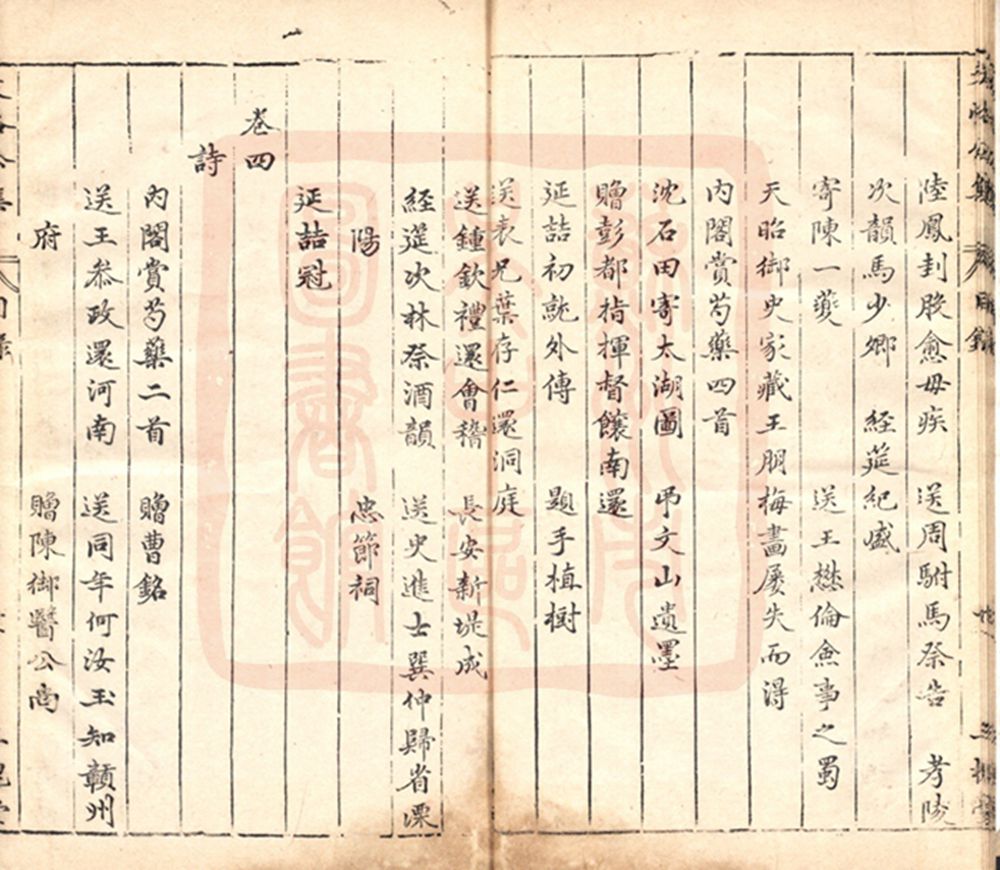 陸鳳封股愈母疾　送周駙馬祭告　考陵
次韻馬少卿　經筵紀盛
寄陳一夔　送王懋倫僉事之蜀
天昭御史家藏王朋梅畫屢失而得
內閣賞芍藥四首
沈石田寄太湖圖　弔文山遺墨
贈彭都指揮督餉南還
延喆初就外傅　題手植樹
送表兄葉存仁還洞庭
送鍾欽禮還會稽　長安新堤成
經筵次林祭酒韻　送史進士巽仲歸省溧
陽　忠節祠
延喆冠
卷四
詩
內閣賞芍藥二首　贈曹銘
送王參政還河南　送同年何汝玉知贛州
府　贈陳御醫公尚